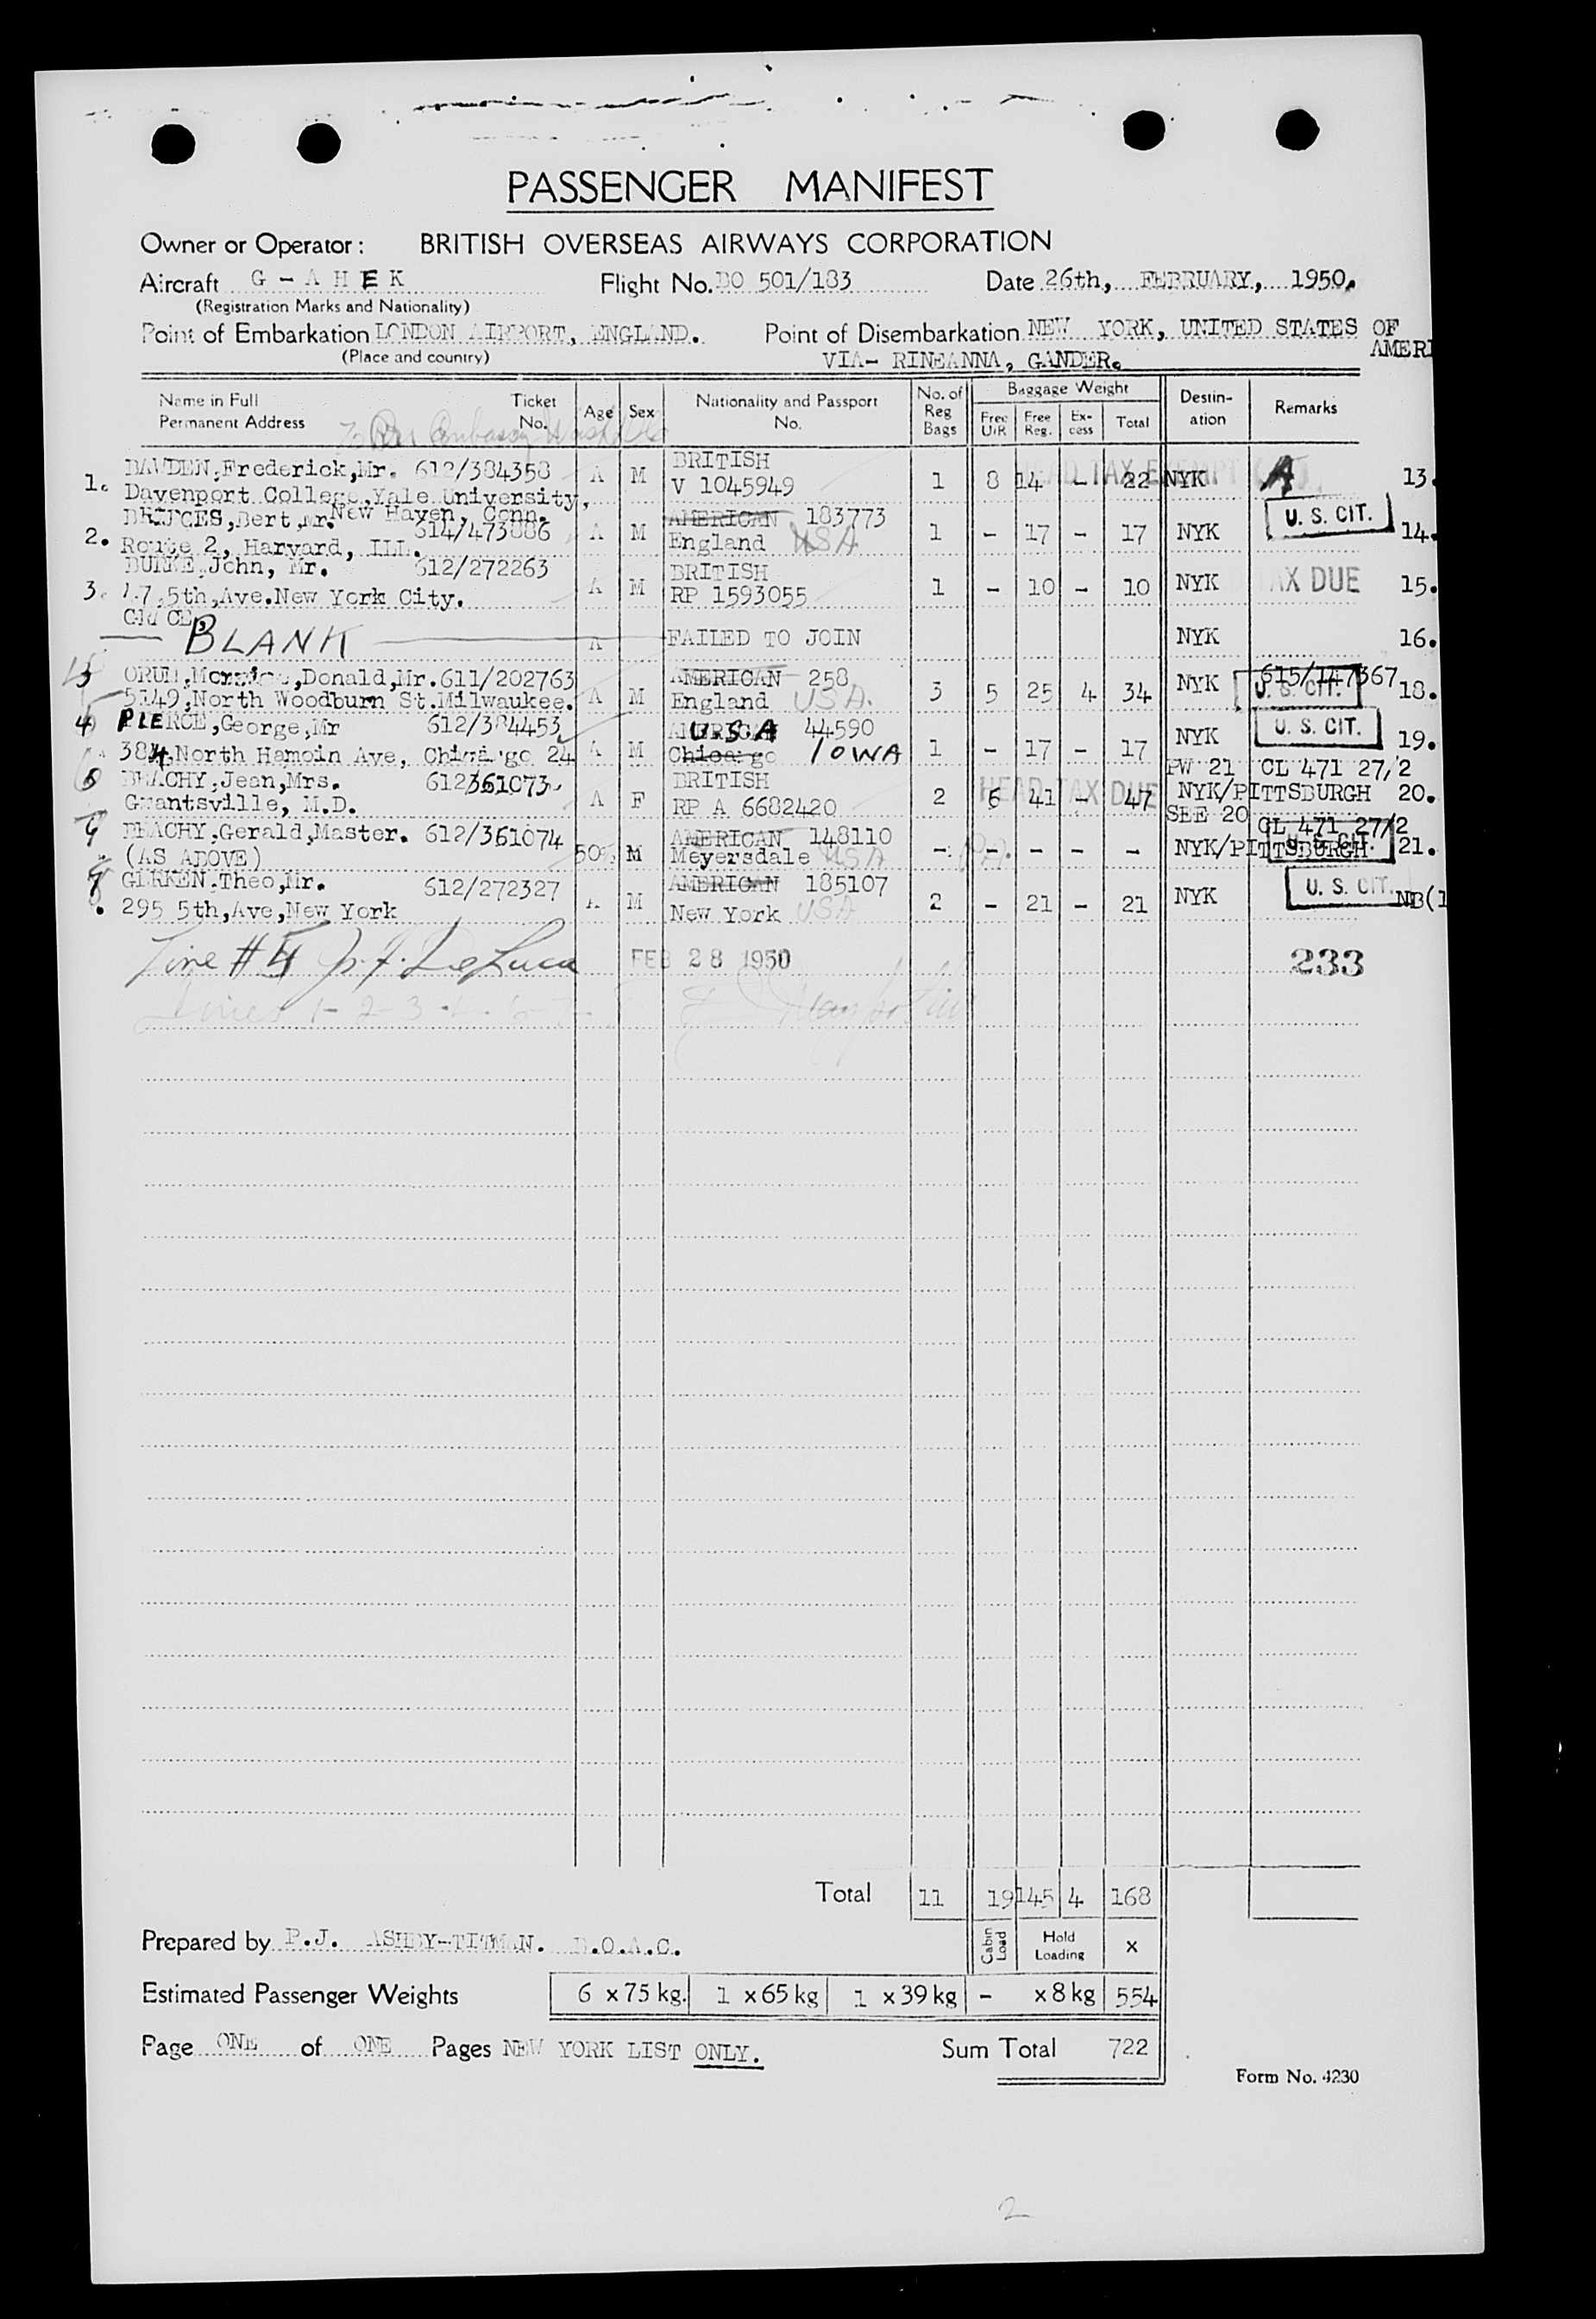 PASSENGER MANIFEST
Owner or Operator: BRITISH OVERSEAS AIRWAYS CORPORATION
Aircraft G - A H E K Flight No. BO 501/183 Date 26th, FEBRUARY, 1950.
(Registration Marks and Nationality)
Point of Embarkation LONDON AIRPORT, ENGLAND. Point of Disembarkation NEW YORK, UNITED STATES OF AMERI
(Place and country) VIA- RINEANNA, GANDER.
Name in Full Permanent Address Ticket No. Age Sex Nationality and Passport No. No. of Reg Bags Baggage Weight Free U/R Free Reg. Ex-cess Total Destin-ation Remarks
1. Frederick, Mr. 612/384358 A M BRITISH 1 8 14 - 22 NYK A 13.
Davenport College, Yale University, V 1045949 HEAD TAX EXEMPT
New Haven, Conn.
2. Bert, Mr. 514/473886 A M AMERICAN 183773 1 - 17 - 17 NYK U. S. CIT. 14.
Route 2, Harvard, ILL. England USA
3. BURKE, John, Mr. 612/272263 A M BRITISH 1 - 10 - 10 NYK TAX DUE 15.
5th, Ave. New York City. RP 1593055
BLANK A FAILED TO JOIN NYK 16.
Donald, Mr. 611/202763 A M AMERICAN 258 3 5 25 4 34 NYK 615/147367 U. S. CIT. 18.
North Woodburn St. Milwaukee. England USA.
4 PIERCE, George, Mr 612/384453 A M U.S.A 44590 1 - 17 - 17 NYK U. S. CIT. 19.
North Hamoin Ave, Chicago 24 Chicago IOWA
PW 21 CL 471 27/2
6 BEACHY, Jean, Mrs. 612/361073 A F BRITISH 2 6 41 - 47 NYK/PITTSBURGH 20.
Grantsville, M.D. RP A 6682420 HEAD TAX DUE
SEE 20 CL 471 27/2
BEACHY, Gerald, Master. 612/361074 50% M AMERICAN 148110 - - - - - NYK/PITTSBURGH U. S. CIT. 21.
(AS ABOVE) Meyersdale USA
GERKEN, Theo, Mr. 612/272327 A M AMERICAN 185107 2 - 21 - 21 NYK U. S. CIT. NB(1
295 5th, Ave, New York New York USA
Line # 5 FEB 28 1950 233
Total 11 19 145 4 168
Prepared by P.J. ASHBY-TITMAN. B.O.A.C. Cabin Load Hold Loading x
Estimated Passenger Weights 6 x 75 kg. 1 x 65 kg 1 x 39 kg - x 8 kg 554
Page ONE of ONE Pages NEW YORK LIST ONLY. Sum Total 722
Form No. 4230
2